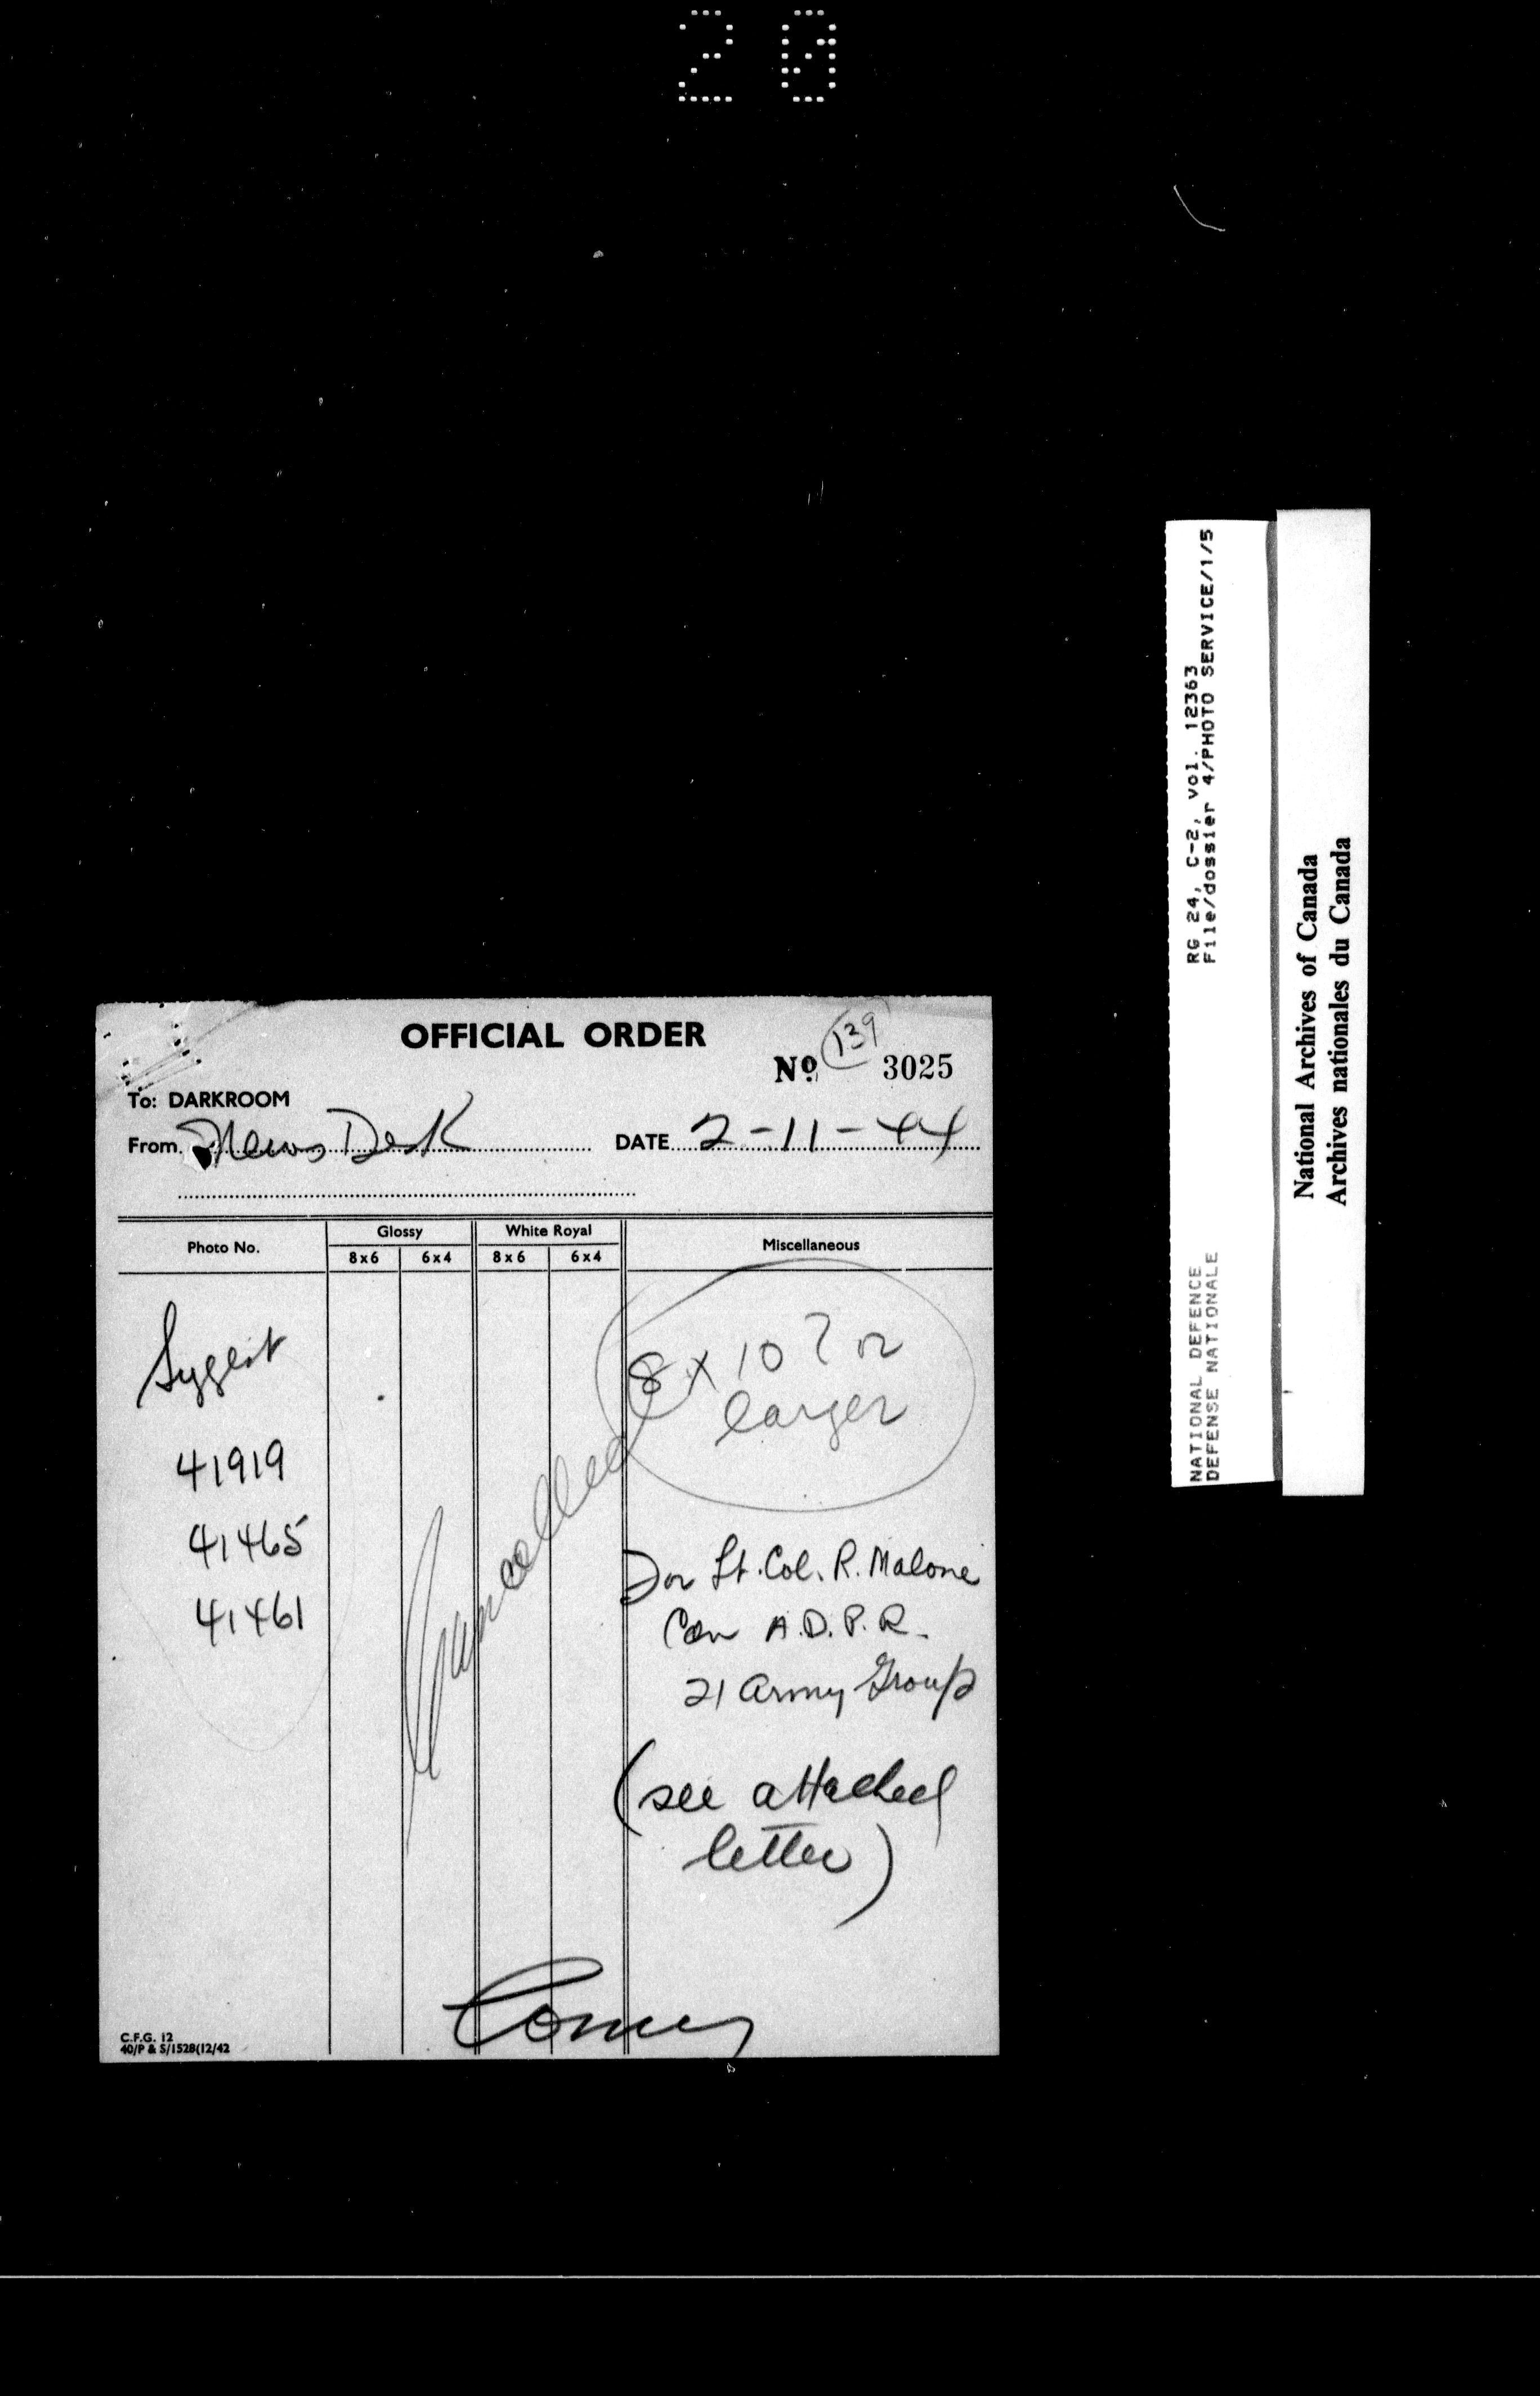 20
OFFICIAL ORDER
139
Nº 3025
To: DARKROOM
From News Desk DATE 2-11-44
Photo No. Glossy White Royal Miscellaneous
8x6 6x4 8x6 6x4
Suggest
8 x 10 ? or
larger
41919
41465
41461
Cancelled
For Lt. Col. R. Malone
Can A.D.P.R.
21 Army Group
(see attached
letter)
C.F.G. 12
40/P & S/1528(12/42
RG 24, C-2, vol. 12363
File/dossier 4/PHOTO SERVICE/1/5
NATIONAL DEFENCE
DEFENSE NATIONALE
National Archives of Canada
Archives nationales du Canada